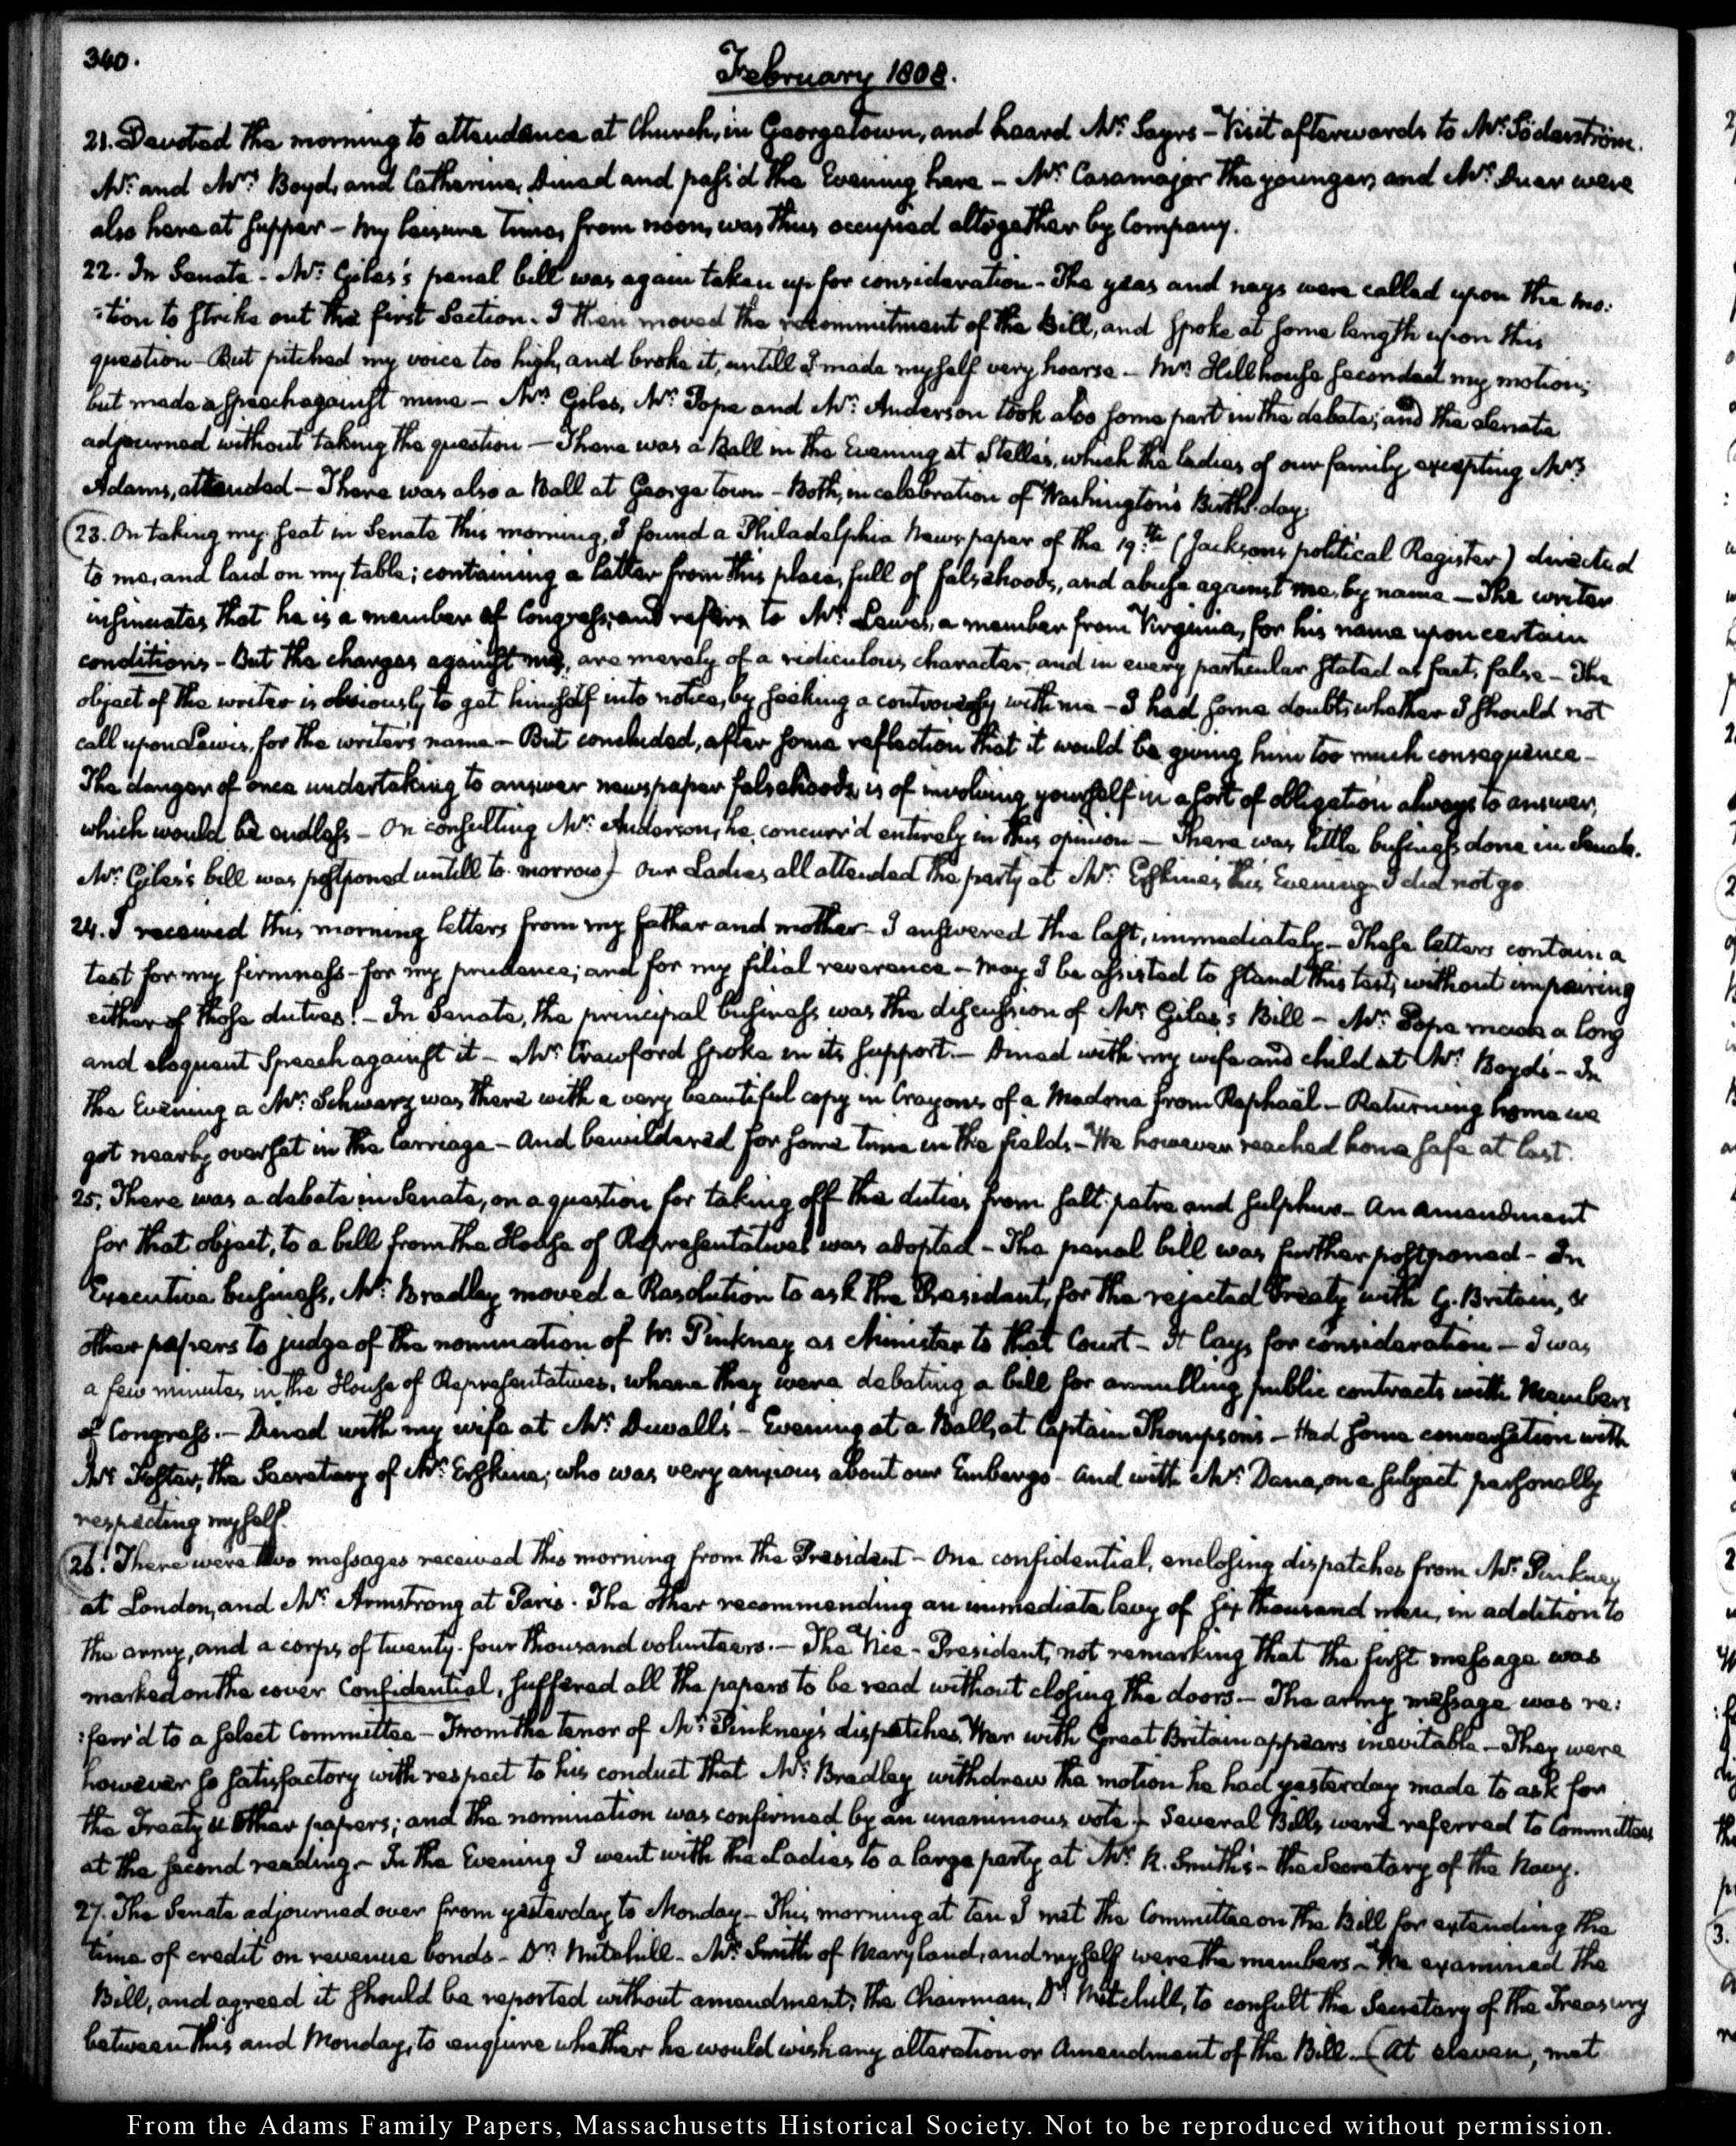 340.
February 1808.
21. Devoted the morning to attendance at Church, in Georgetown, and heard Mr. Sayrs - Visit afterwards to Mr. Söderström.
Mr. and Mrs. Boyd, and Catherine, dined and pass'd the Evening here - Mr. Casamajor the younger, and Mr. Duer were
also here at supper - My leisure time, from noon, was thus occupied altogether by Company.
22. In Senate - Mr. Giles's penal bill was again taken up for consideration - The yeas and nays were called upon the mo:
:tion to strike out the first Section. I then moved the recommitment of the Bill, and spoke at some length upon this
question - But pitched my voice too high, and broke it, untill I made myself very hoarse - Mr. Hillhouse seconded my motion;
but made a speech against mine - Mr. Giles, Mr. Pope and Mr. Anderson took also some part in the debate; and the Senate
adjourned without taking the question - There was a Ball in the Evening at Stelle's, which the ladies of our family, excepting Mrs.
Adams, attended - There was also a Ball at George town - Both, in celebration of Washington's Birth-day.
23. On taking my seat in Senate this morning, I found a Philadelphia Newspaper of the 19th. (Jacksons political Register) directed
to me, and laid on my table; containing a letter from this place, full of falsehoods, and abuse against me, by name - The writer
insinuates that he is a member of Congress; and refers to Mr. Lewis, a member from Virginia, for his name upon certain
conditions - But the charges against me, are merely of a ridiculous character, and in every particular stated as fact, false - The
object of the writer is obviously to get himself into notice, by seeking a controversy with me - I had some doubts whether I should not
call upon Lewis, for the writers name - But concluded, after some reflection that it would be giving him too much consequence -
The danger of once undertaking to answer newspaper falsehoods, is of involving yourself in a sort of obligation always to answer,
which would be endless - On consulting Mr. Anderson, he concurr'd entirely in this opinion - There was little business done in Senate.
Mr. Giles's bill was postponed untill to-morrow) - Our Ladies all attended the party at Mr. Erskine's this Evening - I did not go.
24. I received this morning letters from my father and mother - I answered the last, immediately - These letters contain a
test for my firmness - for my prudence; and for my filial reverence - May I be assisted to stand this test, without impairing
either of those duties! - In Senate, the principal business was the discussion of Mr. Giles's Bill - Mr. Pope made a long
and eloquent speech against it - Mr. Crawford spoke in its support. - Dined with my wife and child at Mr. Boyd's - In
the Evening a Mr. Schwarz was there with a very beautiful copy in Crayons of a Madona from Raphaël - Returning home we
got nearly overset in the Carriage - And bewildered for some time in the fields - We however reached home safe at last.
25. There was a debate in Senate, on a question for taking off the duties from salt-petre and sulphur - An amendment
for that object, to a bill from the House of Representatives was adopted - The penal bill was further postponed - In
Executive business, Mr. Bradley moved a Resolution to ask the President, for the rejected Treaty with G. Britain, &
other papers to judge of the nomination of W. Pinkney as Minister to that Court - It lays for consideration - I was
a few minutes in the House of Representatives, where they were debating a bill for annulling public contracts with Members
of Congress. - Dined with my wife at Mr. Duvall's - Evening at a Ball, at Captain Thompson's - Had some conversation with
Mr. Foster, the Secretary of Mr. Erskine; who was very anxious about our Embargo - And with Mr. Dana, on a subject personally
respecting myself.
26. There were two messages received this morning from the President - One confidential, enclosing dispatches from Mr. Pinkney
at London, and Mr. Armstrong at Paris. The other recommending an immediate levy of six thousand men, in addition to
the army, and a corps of twenty-four thousand volunteers. - The Vice-President, not remarking that the first message was
marked on the cover Confidential, suffered all the papers to be read without closing the doors - The army message was re:
:ferr'd to a select Committee - From the tenor of Mr. Pinkney's dispatches, War with Great Britain appears inevitable - They were
however so satisfactory with respect to his conduct that Mr. Bradley withdrew the motion he had yesterday made to ask for
the Treaty & other papers; and the nomination was confirmed by an unanimous vote.) - Several Bills were referred to Committees
at the second reading. - In the Evening I went with the Ladies to a large party at Mr. R. Smith's - the Secretary of the Navy.
27. The Senate adjourned over from yesterday to Monday - This morning at ten I met the Committee on the Bill for extending the
time of credit on revenue bonds - Dr. Mitchill - Mr. Smith of Maryland, and myself were the members - We examined the
Bill, and agreed it should be reported without amendment; the Chairman, Dr. Mitchill, to consult the Secretary of the Treasury
between this and Monday, to enquire whether he would wish any alteration or Amendment of the Bill. - (At eleven, met
From the Adams Family Papers, Massachusetts Historical Society. Not to be reproduced without permission.